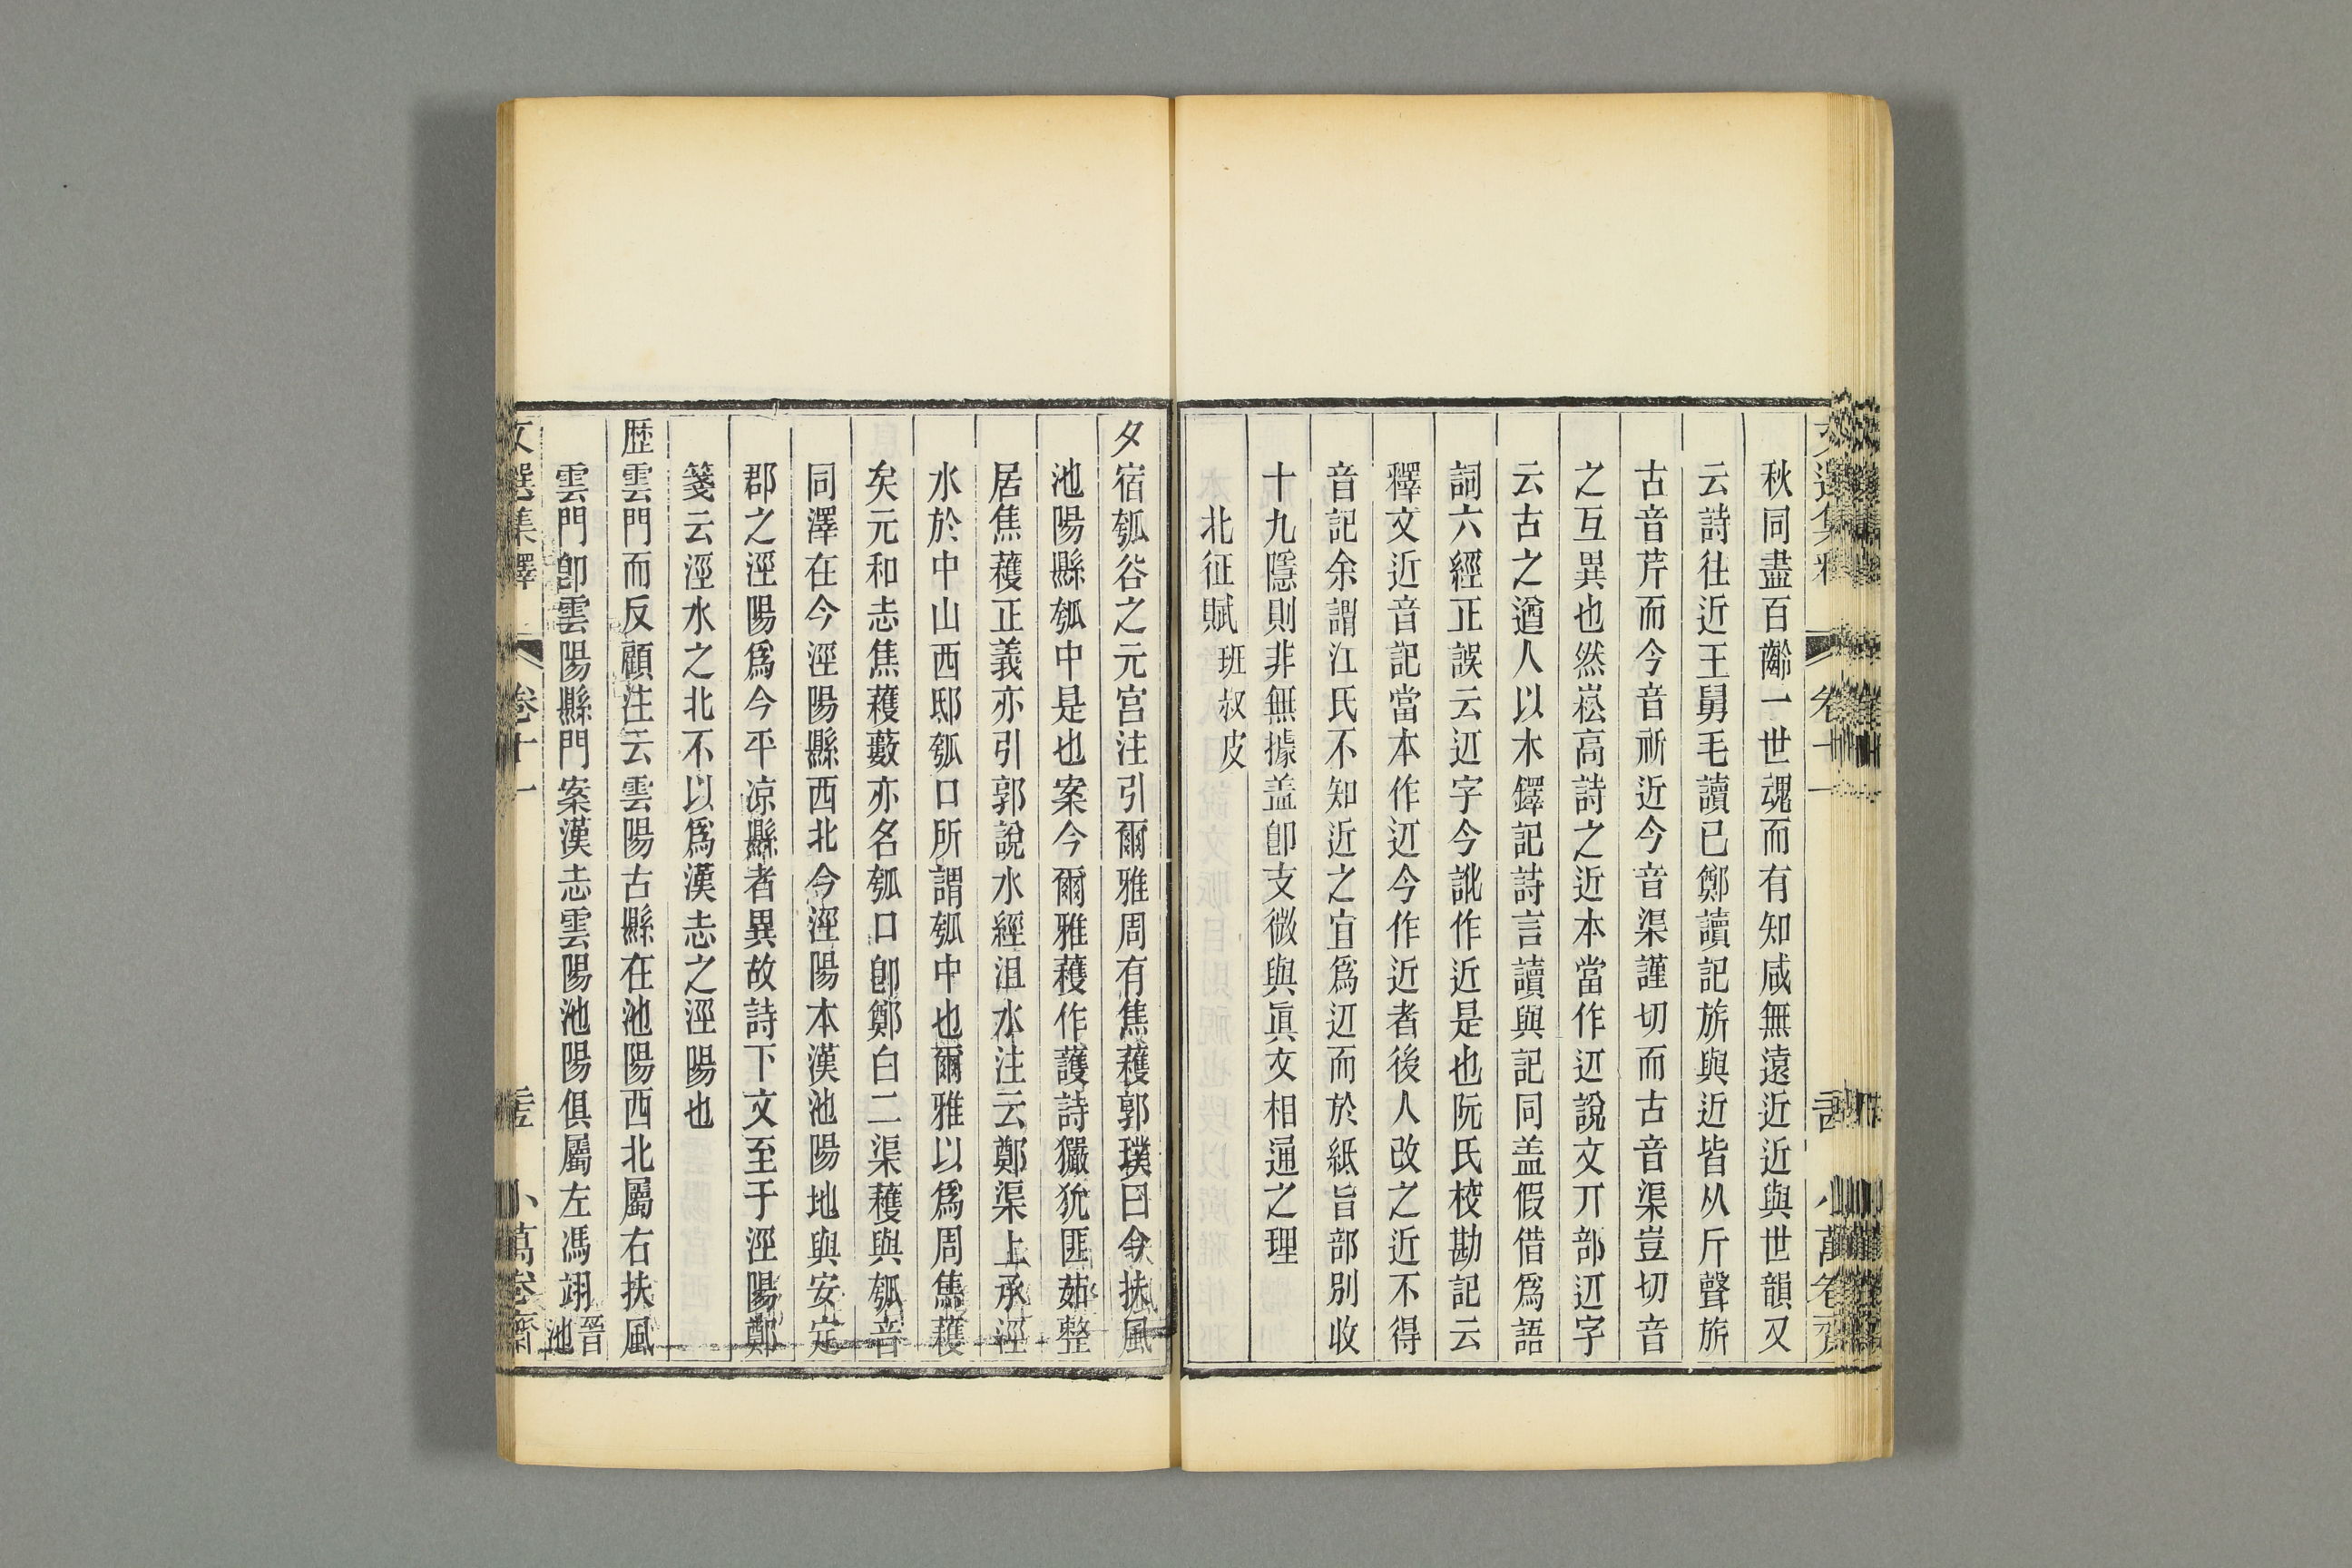 秋同盡百齡一世魂而有知咸無遠近近與世韻又
云詩往近王舅毛讀已鄭讀記旂與近皆从斤聲旂
古音芹而今音祈近今音渠謹切而古音渠豈切音
之互異也然崧高詩之近本當作䢋說文丌部䢋字
云古之遒人以木鐸記詩言讀與記同盖假借爲語
詞六經正誤云䢋字今訛作近是也阮氏校勘記云
釋文近音記當本作䢋今作近者後人改之近不得
音記余謂江氏不知近之宜爲䢋而於紙旨部別收
十九隱則非無據盖卽支微與眞文相通之理
北征賦 班叔皮
夕宿瓠谷之元宫注引爾雅周有焦穫郭璞曰今扶風
池陽縣瓠中是也案今爾雅穫作護詩玁狁匪茹整
居焦穫正義亦引郭說水經沮水注云鄭渠上承涇
水於中山西邸瓠口所謂瓠中也爾雅以爲周焦穫
矣元和志焦穫藪亦名瓠口卽鄭白二渠穫與瓠音
同澤在今涇陽縣西北今涇陽本漢池陽地與安定
郡之涇陽爲今平凉縣者異故詩下文至于涇陽鄭
箋云涇水之北不以爲漢志之涇陽也
歴雲門而反顧注云雲陽古縣在池陽西北屬右扶風
雲門卽雲陽縣門案漢志雲陽池陽俱屬左馮翊晉池
文選集釋 卷十一 小萬卷齋